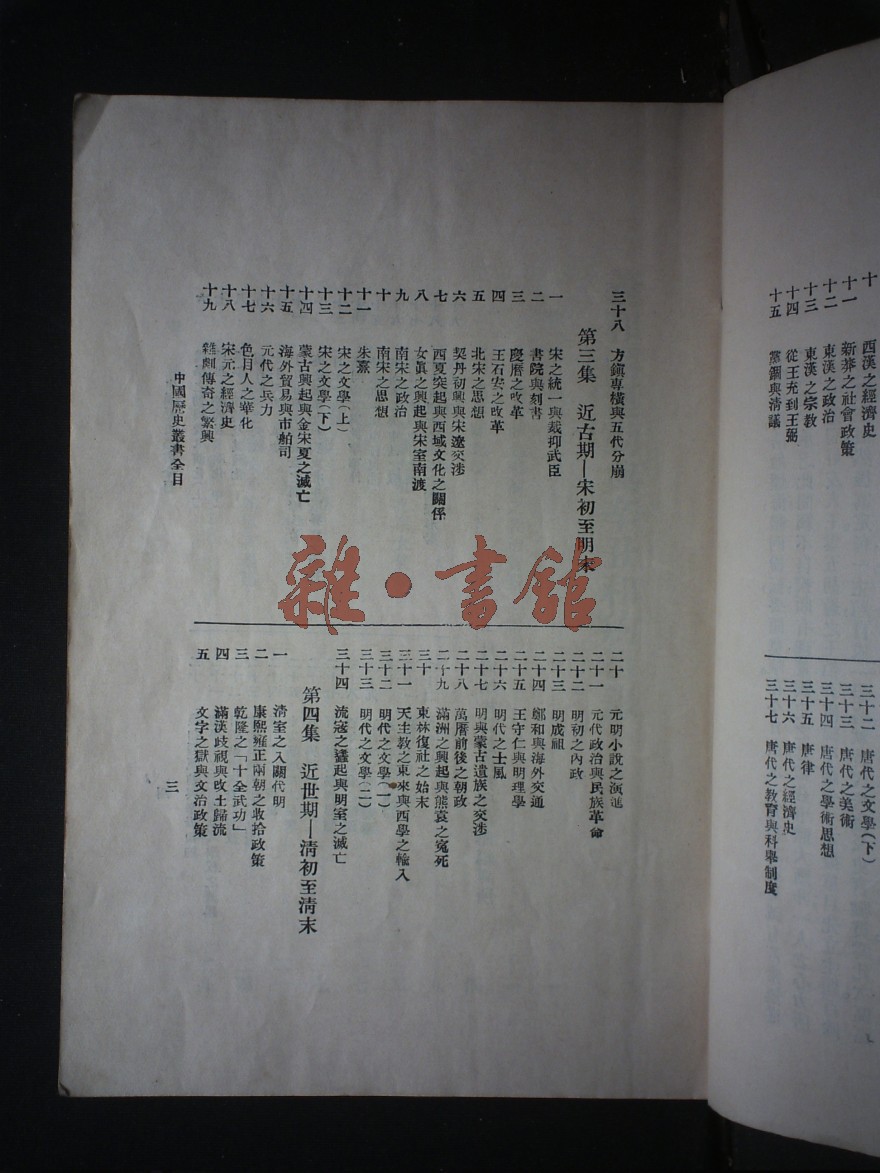 十 西漢之經濟史
十一 新莽之社會政策
十二 東漢之政治
十三 東漢之宗教
十四 從王充到王弼
十五 黨錮與淸議
三十二 唐代之文學(下)
三十三 唐代之美術
三十四 唐代之學術思想
三十五 唐律
三十六 唐代之經濟史
三十七 唐代之教育與科舉制度
三十八 方鎭專橫與五代分崩
第三集 近古期—宋初至明末
一 宋之統一與裁抑武臣
二 書院與刻書
三 慶曆之改革
四 王石安之改革
五 北宋之思想
六 契丹初興與宋遼交涉
七 西夏突起與西域文化之關係
八 女眞之興起與宋室南渡
九 南宋之政治
十 南宋之思想
十一 朱熹
十二 宋之文學(上)
十三 宋之文學(下)
十四 蒙古興起與金宋夏之滅亡
十五 海外貿易與市舶司
十六 元代之兵力
十七 色目人之華化
十八 宋元之經濟史
十九 雜劇傳奇之繁興
二十 元明小說之演進
二十一 元代政治與民族革命
二十二 明初之內政
二十三 明成祖
二十四 鄭和與海外交通
二十五 王守仁與明理學
二十六 明代之士風
二十七 明與蒙古遺族之交涉
二十八 萬曆前後之朝政
二十九 滿洲之興起與熊袁之冤死
三十 東林復社之始末
三十一 天主教之東來與西學之輸入
三十二 明代之文學(一)
三十三 明代之文學(二)
三十四 流寇之蠭起與明室之滅亡
第四集 近世期—淸初至淸末
一 淸室之入關代明
二 康熙雍正兩朝之收拾政策
三 乾隆之「十全武功」
四 滿漢歧視與改土歸流
五 文字之獄與文治政策
中國歷史叢書全目
三
雜·書館